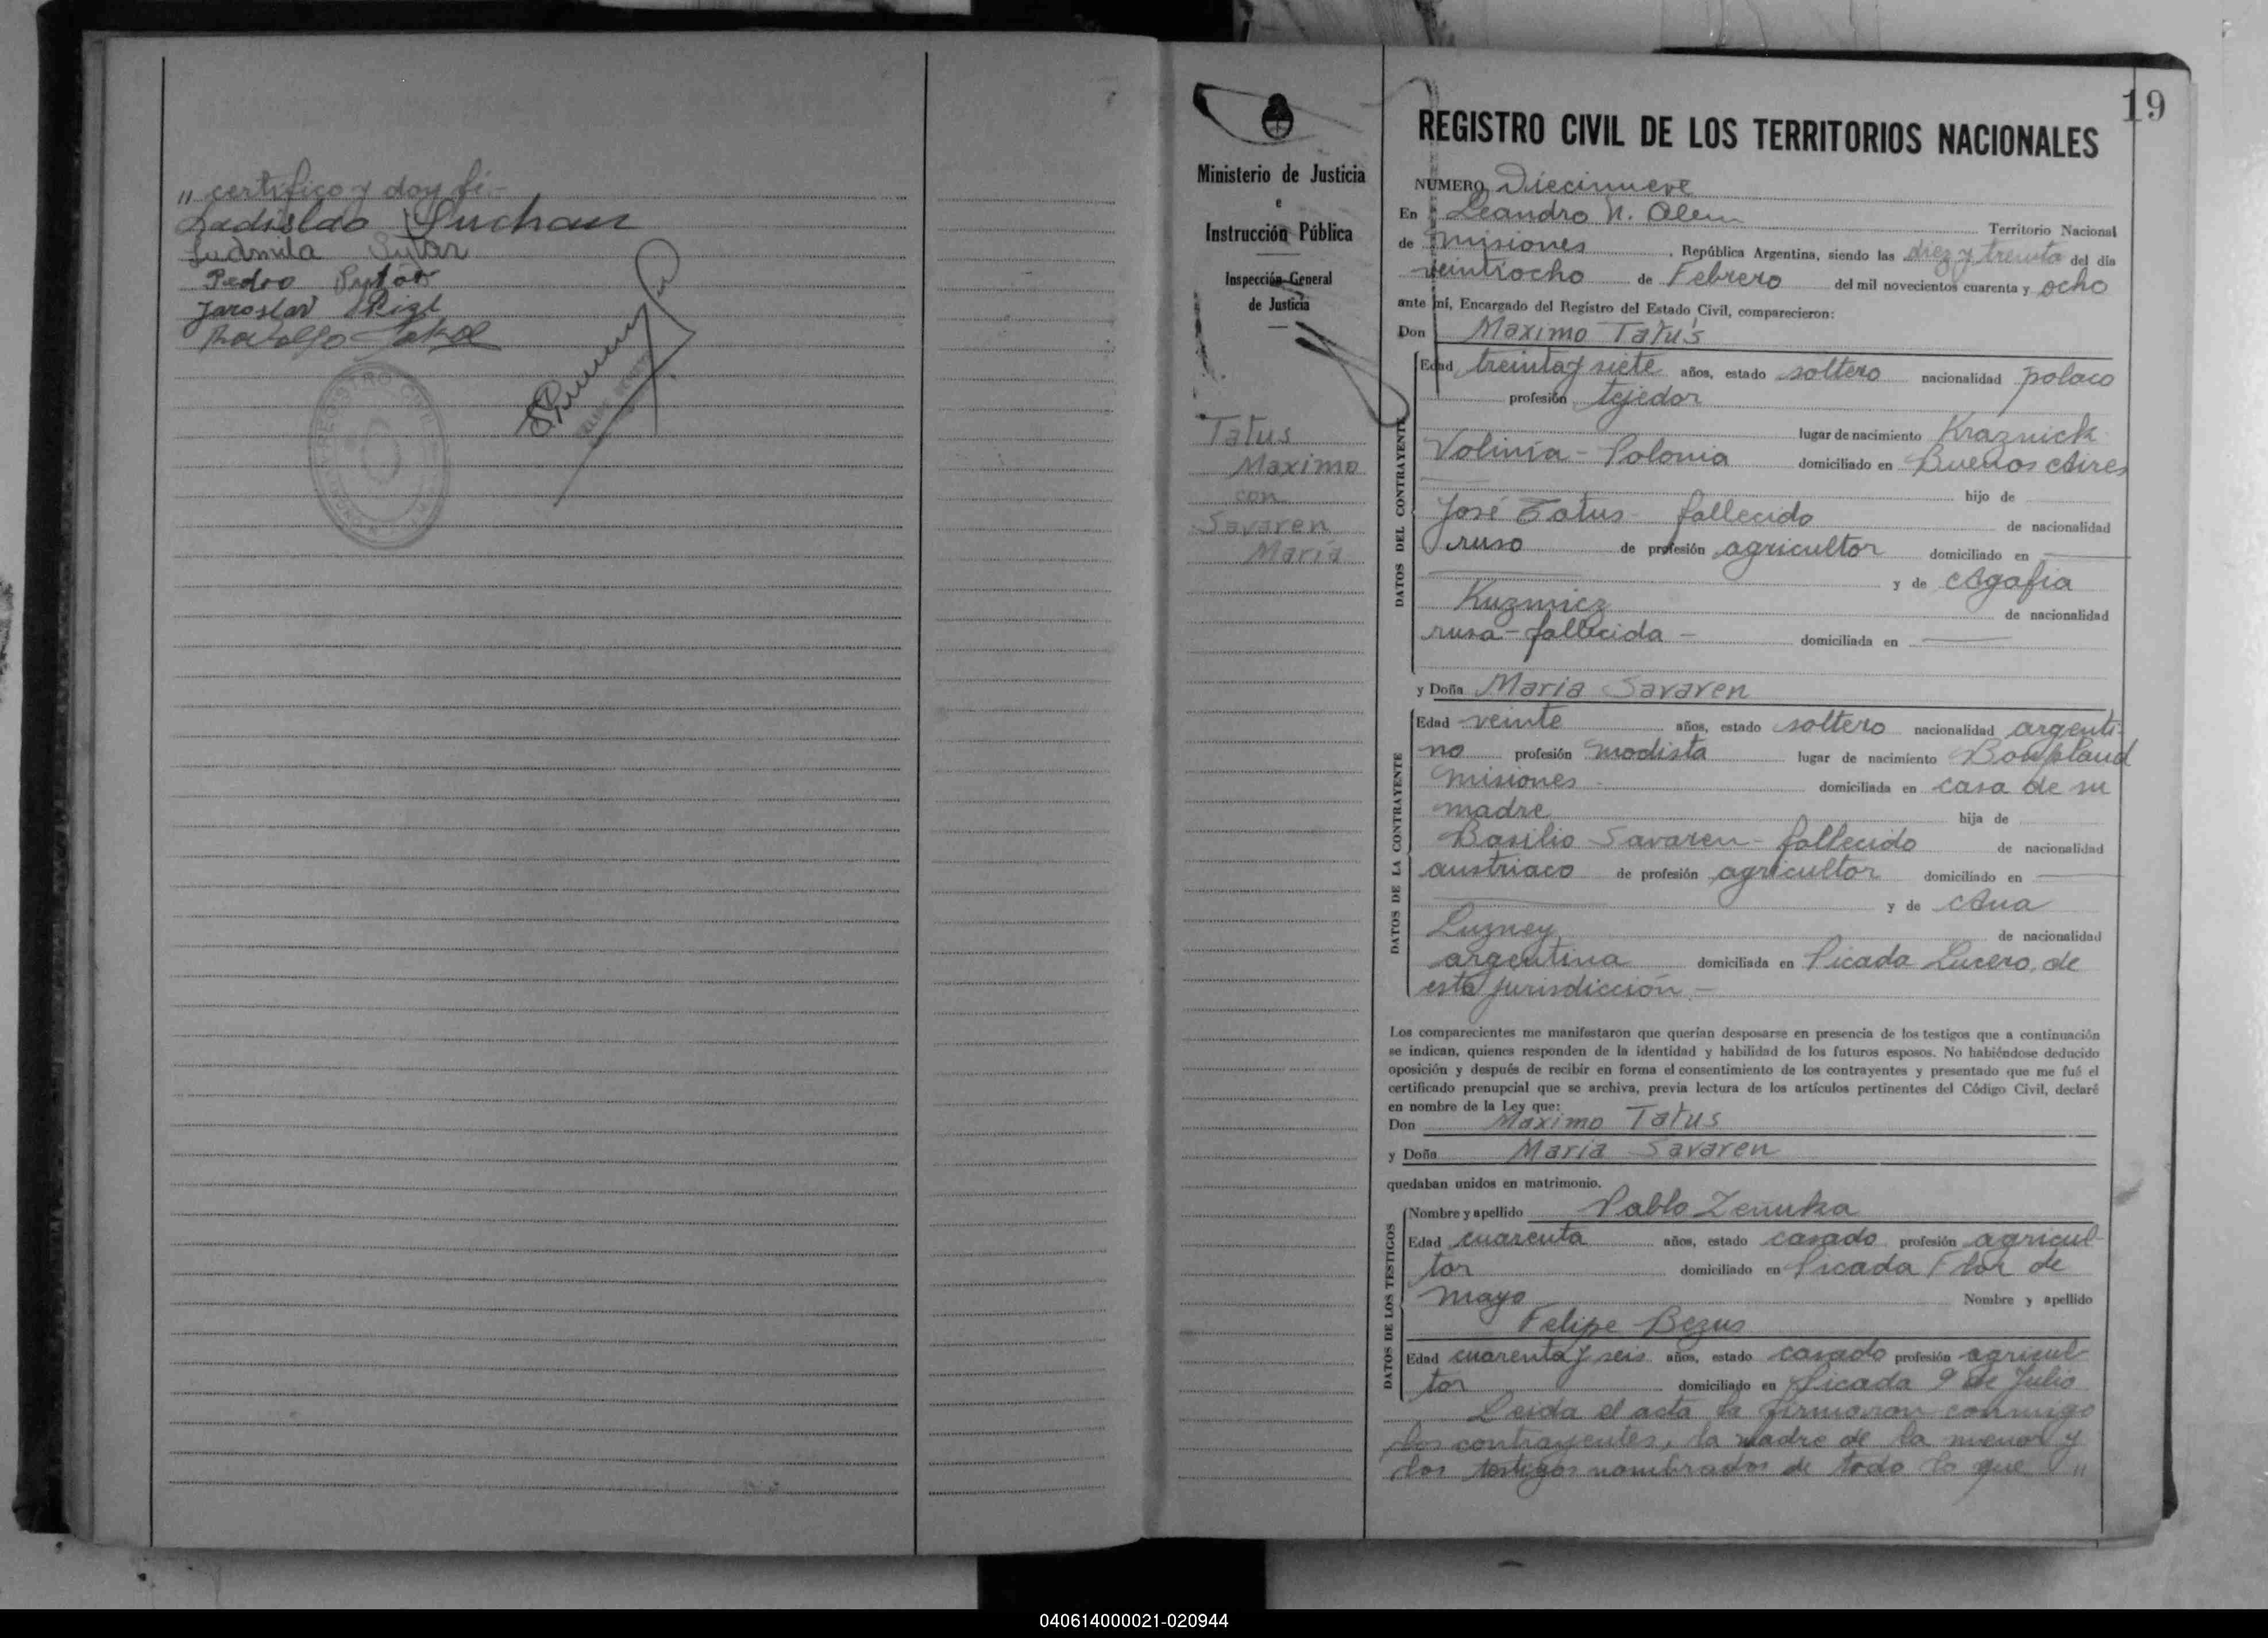 „ certifico y doy fé.-
Ladislao Suchan
Ludmila Sytar
Pedro Sytar
Jaroslav
Rodolfo
19
Ministerio de Justicia
e
Instrucción Pública
Inspección General
de Justicia
Tatus
Maximo
con
Savaren
Maria
REGISTRO CIVIL DE LOS TERRITORIOS NACIONALES
NUMERO Diecinueve
En Leandro N. Alem Territorio Nacional
de Misiones, República Argentina, siendo las diez y treinta del día
veintiocho de Febrero del mil novecientos cuarenta y ocho
ante mí, Encargado del Registro del Estado Civil, comparecieron:
Don Maximo Tatus
DATOS DEL CONTRAYENTE
Edad treinta y siete años, estado soltero nacionalidad polaco
profesión tejedor
lugar de nacimiento Kraznick
Volinia - Polonia domiciliado en Buenos Aires
hijo de
José Tatus - fallecido de nacionalidad
ruso de profesión agricultor domiciliado en
y de Agafia
Kuzmicz de nacionalidad
rusa - fallecida - domiciliada en
y Doña Maria Savaren
DATOS DE LA CONTRAYENTE
Edad veinte años, estado soltero nacionalidad argenti-
no profesión modista lugar de nacimiento Bonpland
Misiones - domiciliada en casa de su
madre hija de
Basilio Savaren - fallecido de nacionalidad
austriaco de profesión agricultor domiciliado en
y de Ana
Luzney de nacionalidad
argentina domiciliada en Picada Lucero, de
esta jurisdicción.-
Los comparecientes me manifestaron que querían desposarse en presencia de los testigos que a continuación
se indican, quienes responden de la identidad y habilidad de los futuros esposos. No habiéndose deducido
oposición y después de recibir en forma el consentimiento de los contrayentes y presentado que me fué el
certificado prenupcial que se archiva, previa lectura de los artículos pertinentes del Código Civil, declaré
en nombre de la Ley que:
Don Maximo Tatus
y Doña Maria Savaren
quedaban unidos en matrimonio.
DATOS DE LOS TESTIGOS
Nombre y apellido Pablo Zemuka
Edad cuarenta años, estado casado profesión agricul-
tor domiciliado en Picada Flor de
Mayo Nombre y apellido
Felipe Bezus
Edad cuarenta y seis años, estado casado profesión agricul-
tor domiciliado en Picada 9 de Julio
Leida el acta la firmaron conmigo
los contrayentes, la madre de la menor y
los testigos nombrados de todo lo que „
040614000021-020944